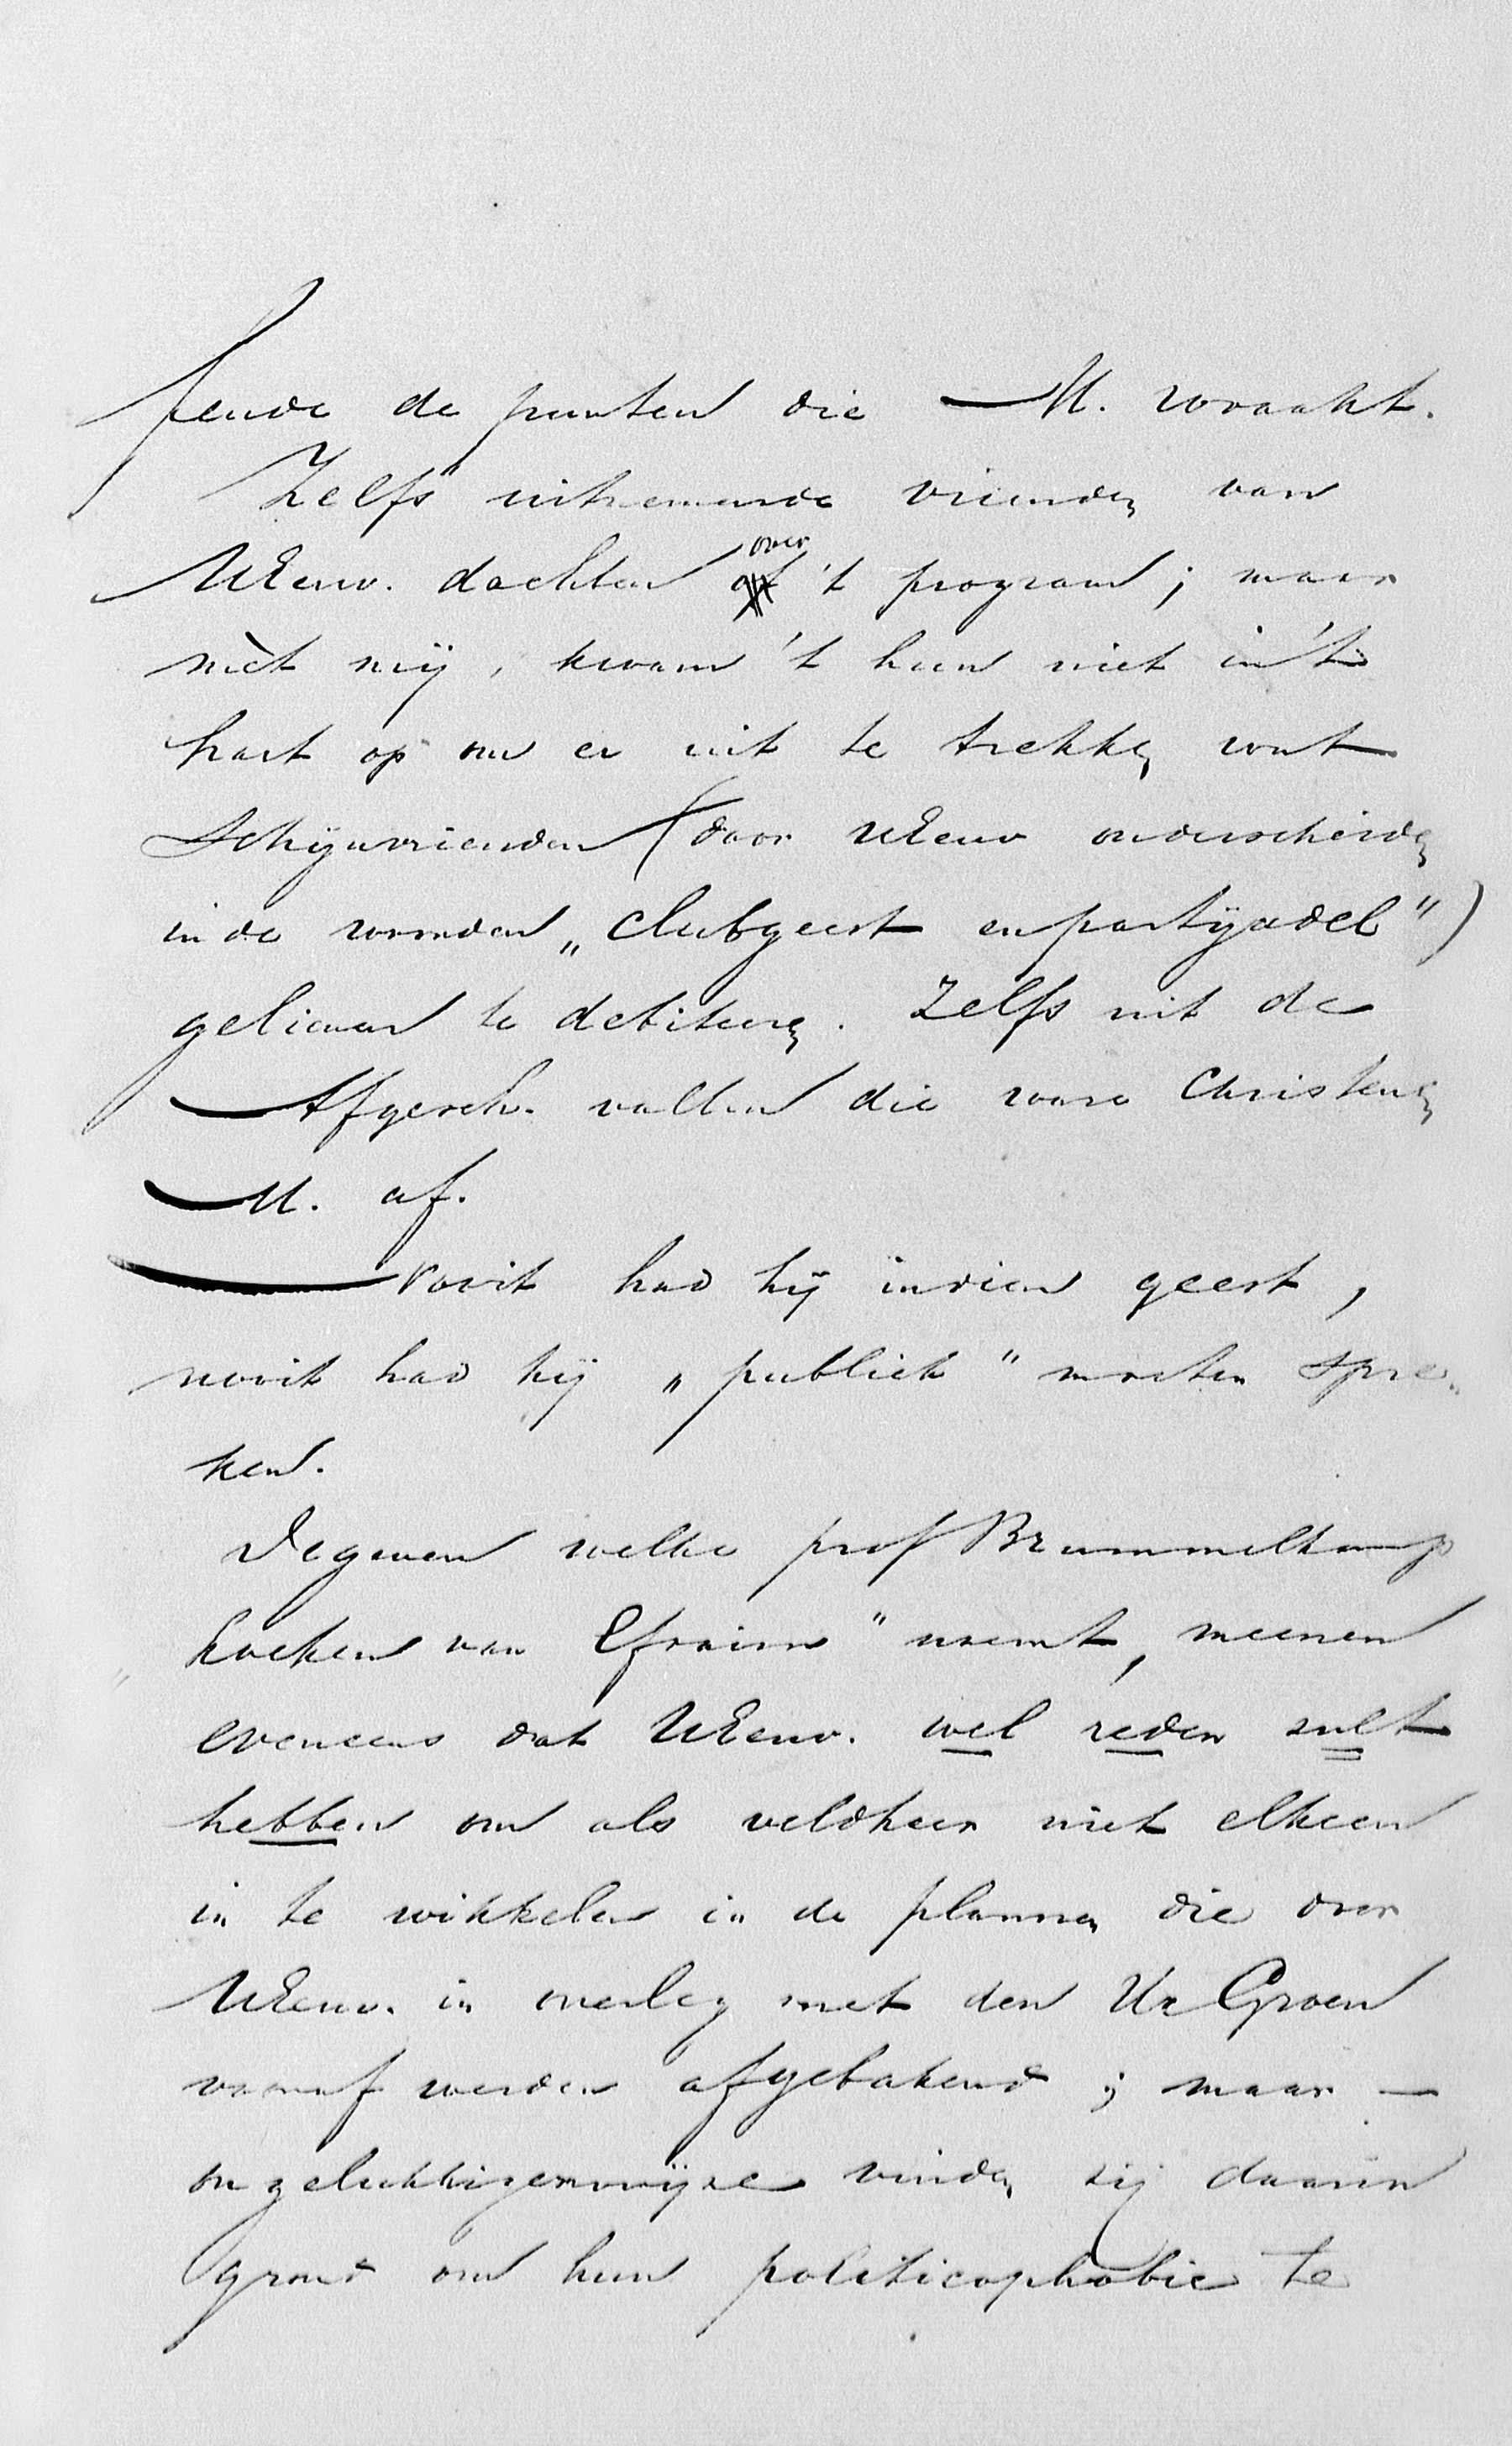 fende de punten die M. wraakt.
Zelfs uitnemende vrienden van
UEerw. dachten over 't program; maar
nèt mij, kwam 't hun niet in 't
hart op om er uit te trekken wat
Schijnvrienden (door UEerw onderscheiden
in de woorden „Clubgeest en partijadel")
gelieven te debiteeren. Zelfs uit de
Afgesch. vallen die ware Christenen
M. af.
Nooit had hij in dien geest,
nooit had hij „publiek" moeten spre-
ken.
Degenen welke prof Brummelkamp
„koeken van Efraim" noemt, meenen
eveneens dat UEerw. wel reden zult
hebben om als veldheer niet elkeen
in te wikkelen in de plannen die door
UEerw. in overleg met den Hr Groen
vooraf werden afgebakend; maar —
ongelukkigerwijze vinden zij daarin
grond om hun politicophobie te